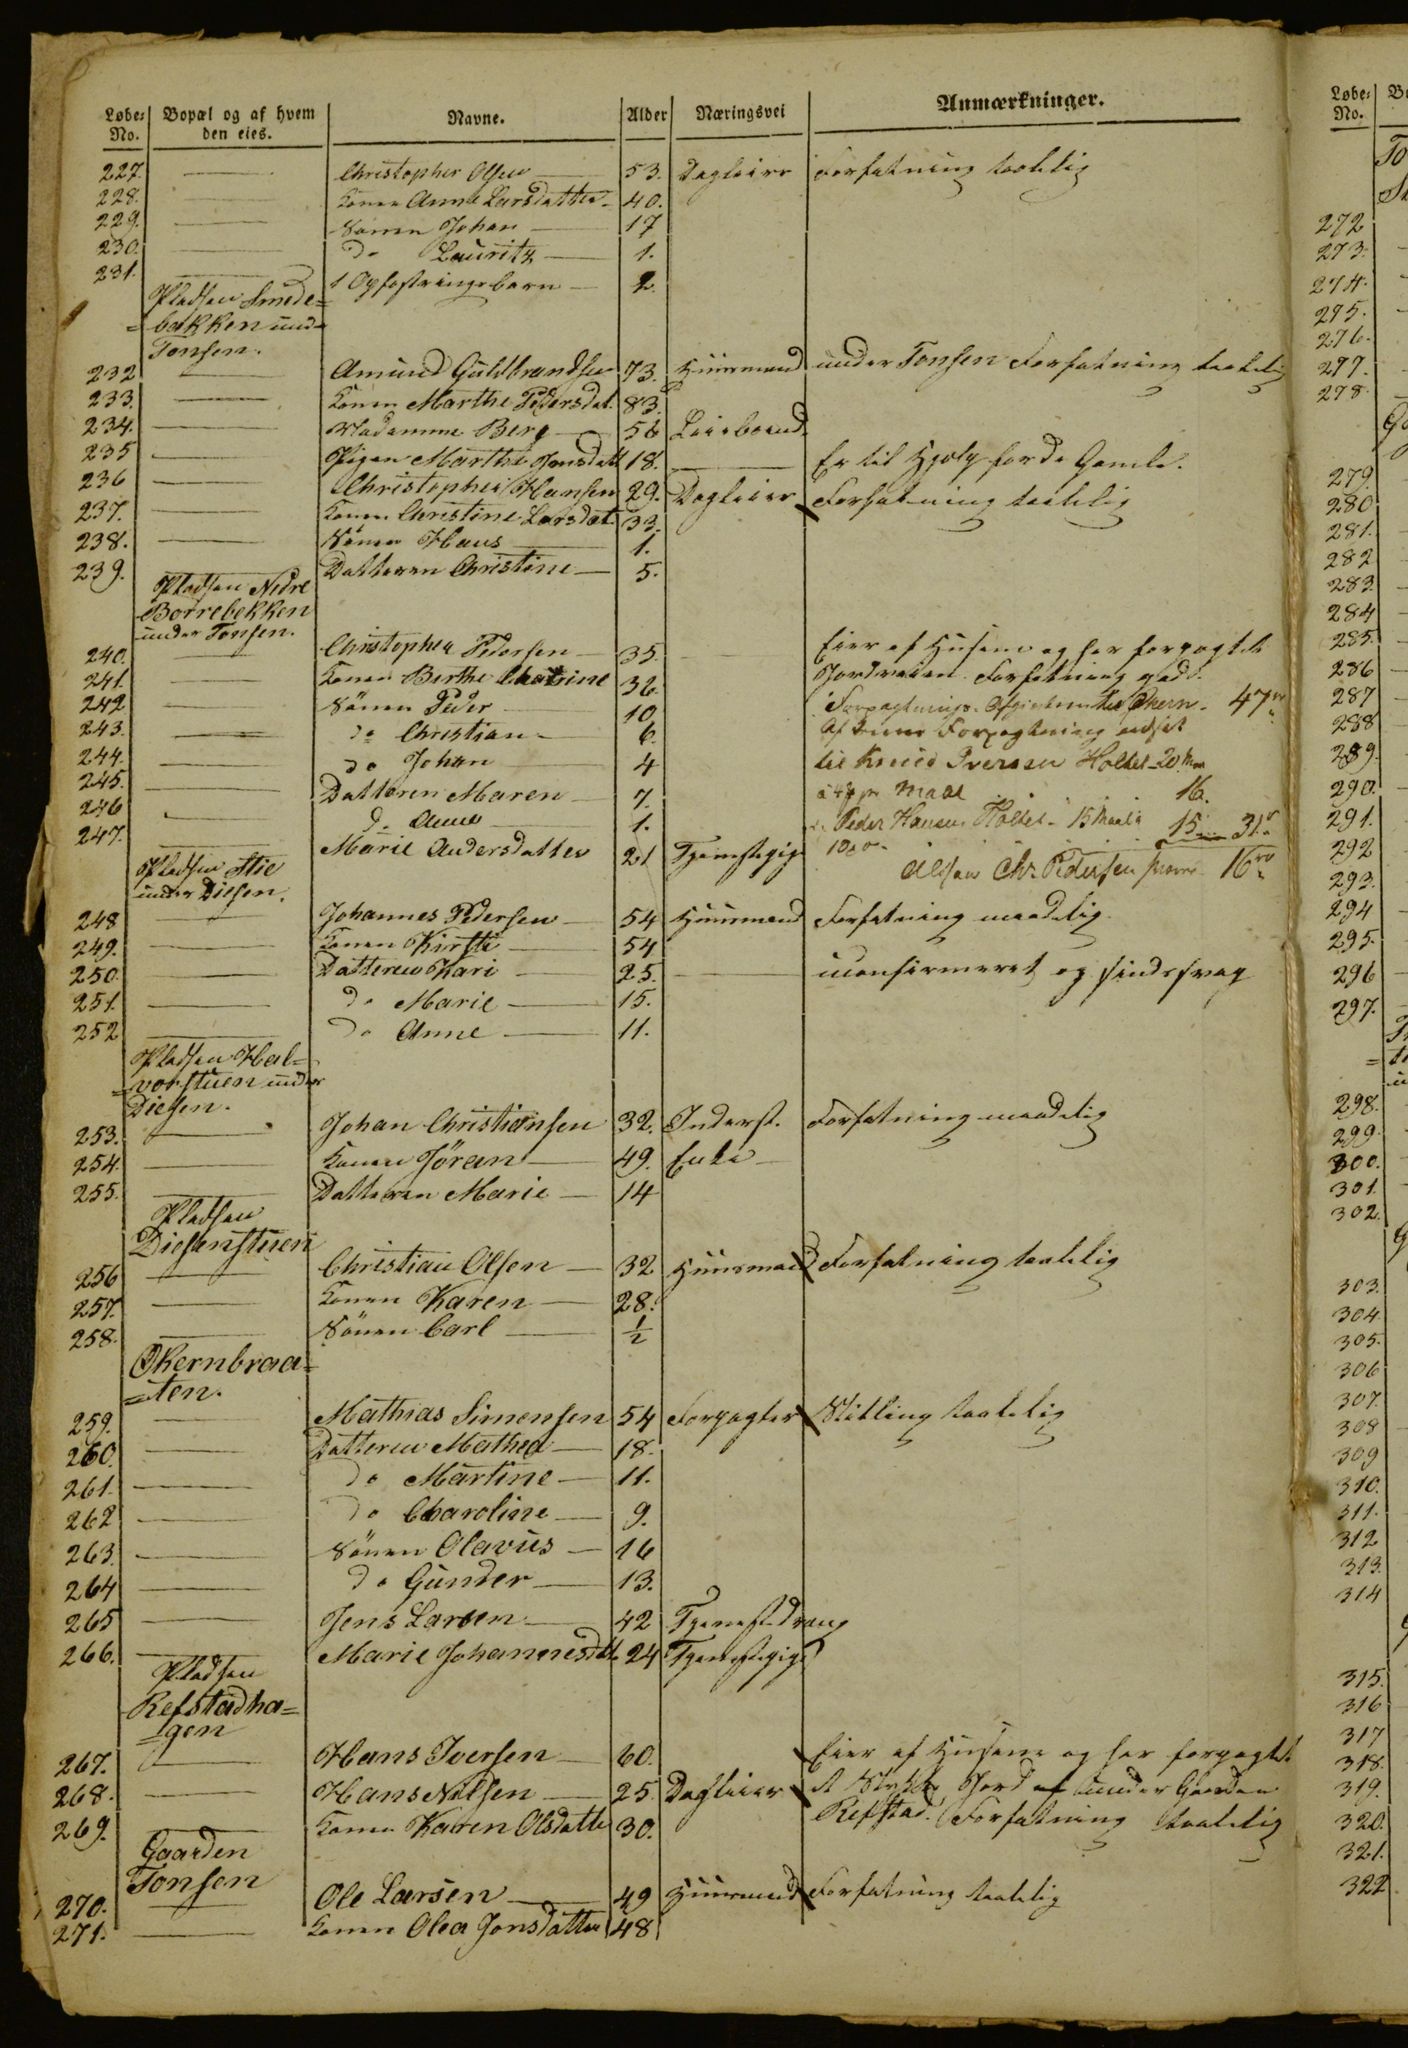 Løbe-No. Bopæl og af hvem den eies. Navne. Alder Næringsvei Anmærkninger.
227. Christopher Olsen 53. Dagleier Forfatning taalelig
228. Konen Anne Larsdatter 40.
229. Sönnen Johan 17
230. do Lauritz 1.
231. 1 Opfostringsbarn 2.
Pladsen Smede=
=bakken und
Tonsen.
232 Amund Guldbrandsen 73. Huusmand under Tonsen Forfatning taalelig
233. Konen Marthe Pedersdat. 83.
234. Madamme Berg 56 Leieboend.
235 Pigen Marthe Jonsdatt 18. Er til Hjelp for de Gamle.
236 Christopher Hansen 29. Dagleier Forfatning taalelig
237. Konen Christine Larsdat. 33.
238. Sönnen Hans 1.
239. Datteren Christine 5.
Pladsen Nedre
Borrebekken
under Tonsen.
240. Christopher Pedersen 35. Eier af Husene og har forpagtet
241. Konen Berthe Chatrine 36. Jordveien. Forfatning god.
242 Sönnen Peder 10 Forpagtnings-Afgiften til Økern 47
243. do Christian 6. Af denne Forpagtning
244. do Johan 4 til Knud Iversen Holtet 20 Maal
245. Datteren Maren 7. Maal 16.
246 do Anne 1. Peder Hansen Holtet 15 Maal 15 31.
247. Marie Andersdatter 21 Tjenestepige Altsaa Chr. Pedersen 16
Pladsen Stie
under Disen.
248 Johannes Pedersen 54 Huusmand Forfatning maadelig
249. Konen Kirsti 54
250. Datteren Kari 25. uconfirmeret og sindssvag
251. do Marie 15.
252 do Anne 11.
Pladsen Hal=
=vorstuen under
Diesen.
253. Johan Christiansen 32. Inderst. Forfatning maadelig
254. Konen Jöran 49. Enke
255. Datteren Marie 14
Pladsen
Diesenstuen
256 Christian Olsen 32 Huusmand Forfatning taalelig
257. Konen Karen 28.
258. Sönnen Carl 1/2
Økernbraa=
=ten.
259. Mathias Simensen 54 Forpagter Stilling taalelig
260. Datteren Mathea 18.
261. do Martine 11.
262 do Charoline 9.
263. Sönnen Olavus 16
264 do Gunder 13.
265 Jens Larsen 42 Tjenestedreng
266. Marie Johannesdt. 24 Tjenestepige
Pladsen
Refstadha=
=gen
267. Hans Iversen 60. Eier af Husene og har forpagtet
268. Hans Nilsen 25. Dagleier et Stykke Jord under Gaarden
269. Konen Karen Olsdatte 30. Refstad. Forfatning taalelig
Gaarden
Tonsen
270. Ole Larsen 49 Huusmand Forfatning taalelig
271. Konen Olea Jonsdatter 48
Løbe-No.
272
273.
274.
275.
276.
277.
278.
279.
280
281.
282
283.
284
285.
286
287
288
289.
290.
291.
292
293.
294
295.
296
297.
298.
299.
300.
301.
302.
303.
304
305.
306
307.
308
309
310.
311.
312
313.
314
315.
316
317
318.
319.
320.
321.
322